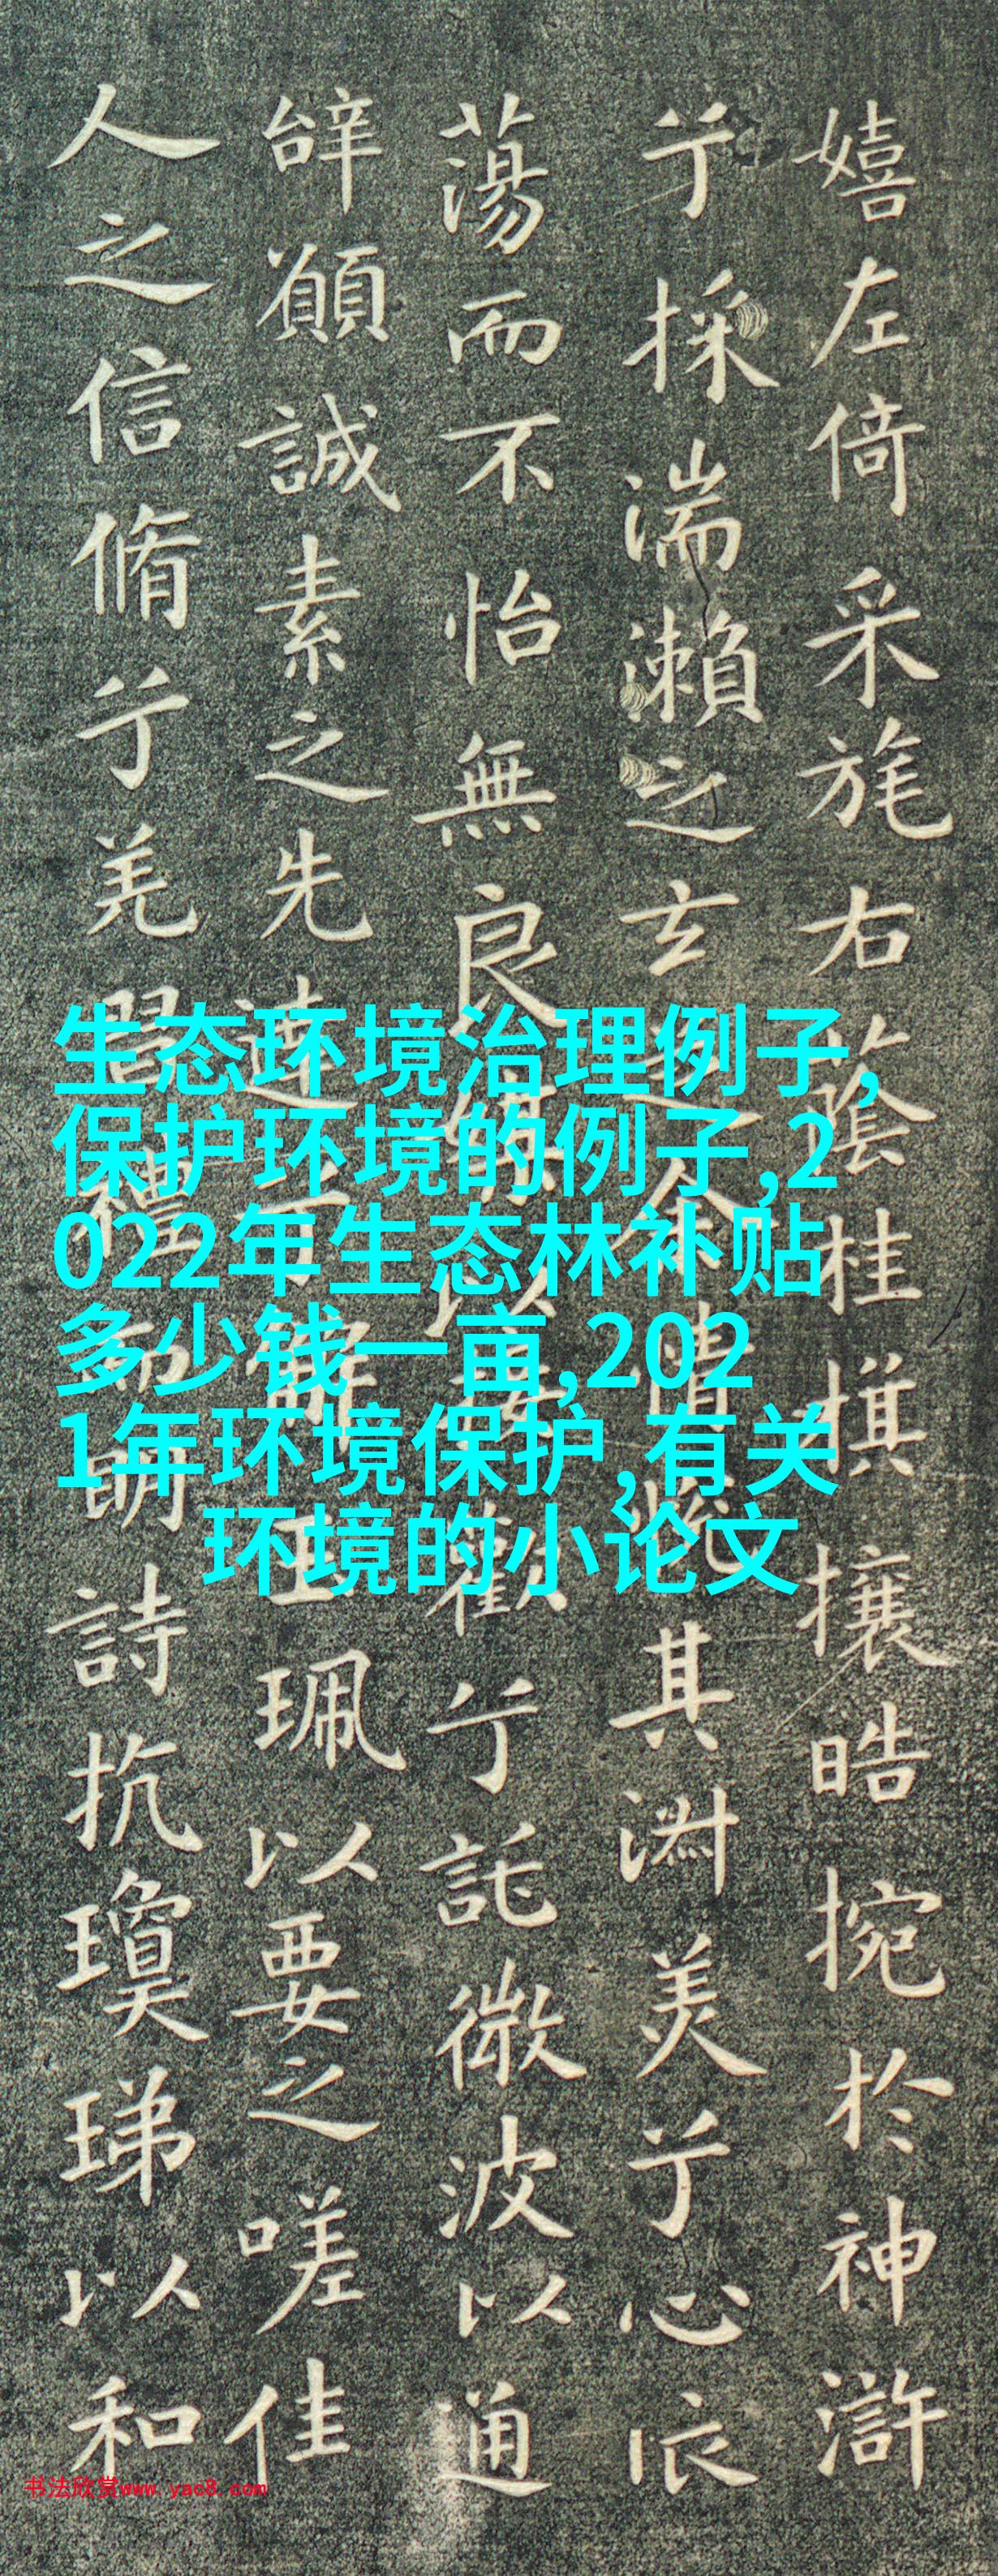 嬉左倚采旄右蔭桂棋攘皓捥於神滸
兮採湍瀨之玄芝余情悅其淑美兮心依
蕩而不怡無良媒以接歡兮託微波以通
辝願誠素之先達兮解玉珮以要之嗟佳
人之信脩兮羌習禮而明詩抗瓊珶以和
生态环境治理例子,
保护环境的例子,2
022年生态林补贴
多少钱一亩,202
1年环境保护,有关
环境的小论文
书法欣赏www.yac8.com